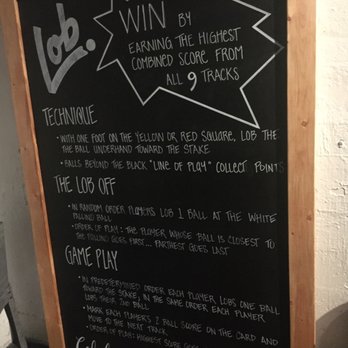 Lob.
WIN BY
EARNING THE HIGHEST
COMBINED SCORE FROM
ALL 9 TRACKS
TECHNIQUE
• WITH ONE FOOT ON THE YELLOW OR RED SQUARE, LOB THE
THE BALL UNDERHAND TOWARD THE STAKE
• BALLS BEYOND THE BLACK "LINE OF PLAY" COLLECT POINTS
THE LOB OFF
• IN RANDOM ORDER PLAYERS LOB 1 BALL AT THE WHITE
BALL
• ORDER OF PLAY: THE PLAYER WHOSE BALL IS CLOSEST TO
THE GOES FIRST... FARTHEST GOES LAST
GAME PLAY
• IN PREDETERMINED ORDER EACH PLAYER LOBS ONE BALL
TOWARD THE STAKE, IN THE SAME ORDER EACH PLAYER
LOBS THEIR 2ND BALL
• MARK EACH PLAYERS 2 BALL SCORE ON THE CARD AND
MOVE TO THE NEXT TRACK
• ORDER OF PLAY: HIGHEST SCORE GOES